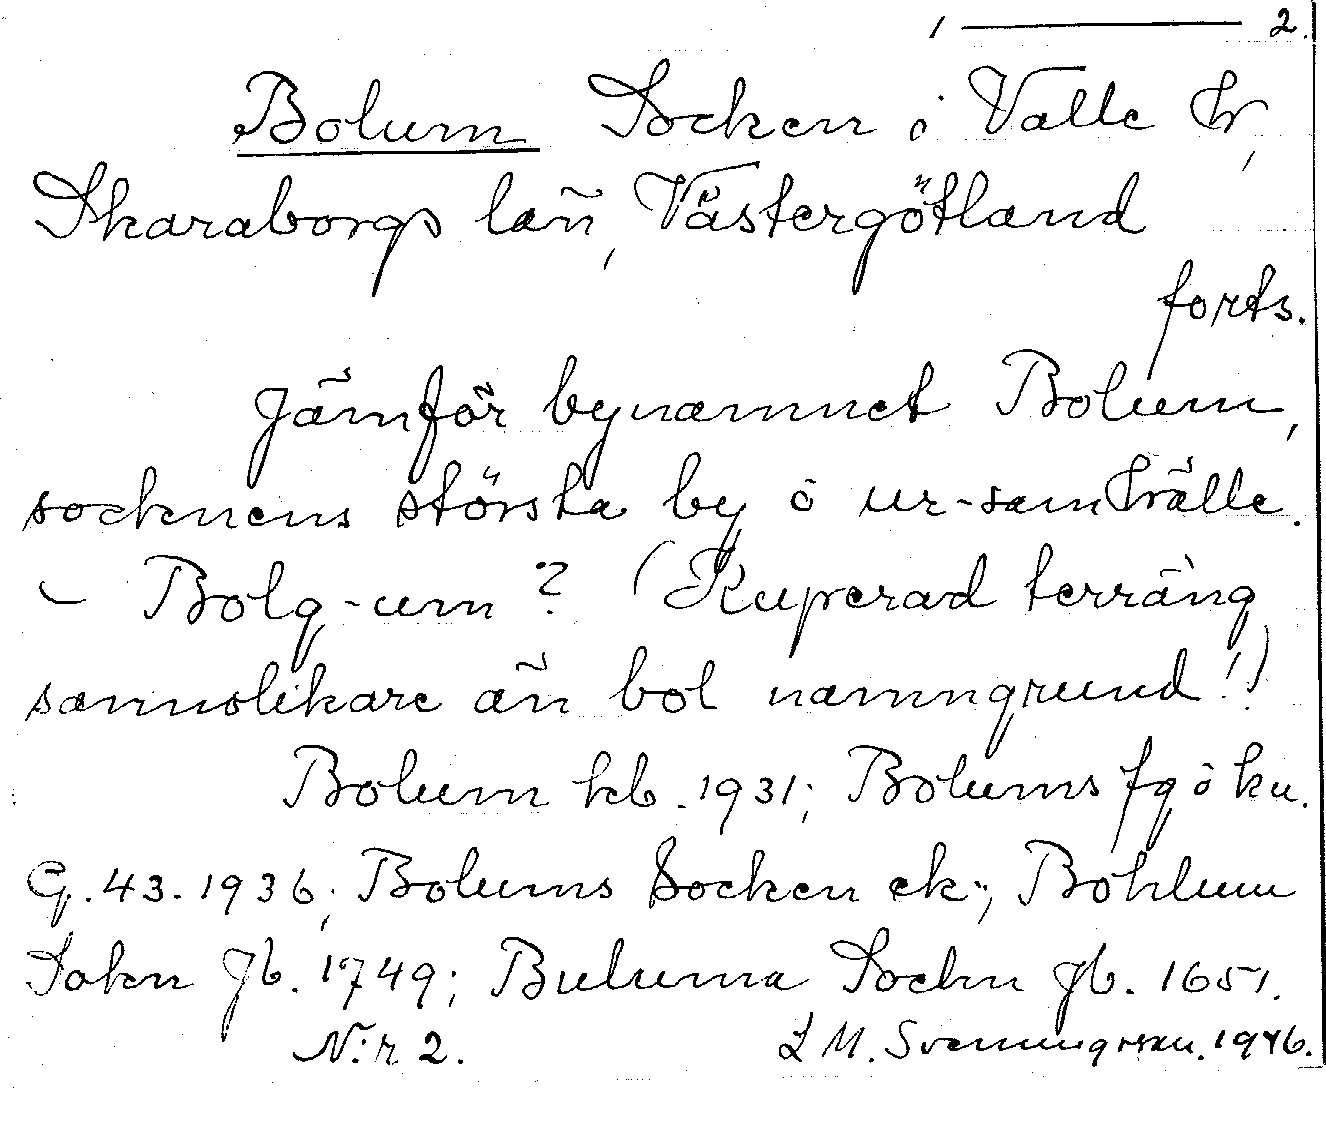 1 — 2.
Bolum Socken i Valle hr,
Skaraborgs län, Västergötland
forts.
Jämför bynamnet Bolum,
socknens största by o ur-samhälle.
– Bolg-um? (Kuperad terräng
sannolikare än bol namngrund!)
Bolum kb. 1931; Bolums fg o ku.
G. 43. 1936; Bolums Socken ek.; Bohlum
Sokn Jb. 1749; Buluma Sochn Jb. 1651.
N:r 2. L M. Svenungsson. 1946.